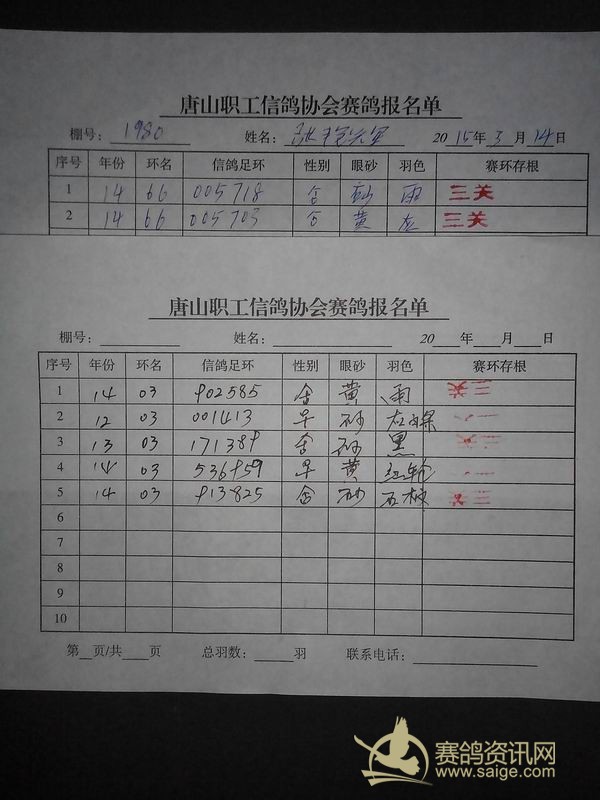 唐山职工信鸽协会赛鸽报名单
棚号: 1980 姓名: 2015年3月14日
序号 年份 环名 信鸽足环 性别 眼砂 羽色 赛环存根
1 14 66 005718 合 砂 雨 三关
2 14 66 005703 合 黄 灰 三关
唐山职工信鸽协会赛鸽报名单
棚号: 姓名: 20 年 月 日
序号 年份 环名 信鸽足环 性别 眼砂 羽色 赛环存根
1 14 03 902585 合 黄 雨 三关
2 12 03 001413 早 砂
3 13 03 171389 合 砂 黑 三关
4 14 03 536959 早 黄 红轮
5 14 03 913825 合 砂 石板 三关
6
7
8
9
10
第 页/共 页 总羽数: 羽 联系电话:
赛鸽资讯网
www.saige.com